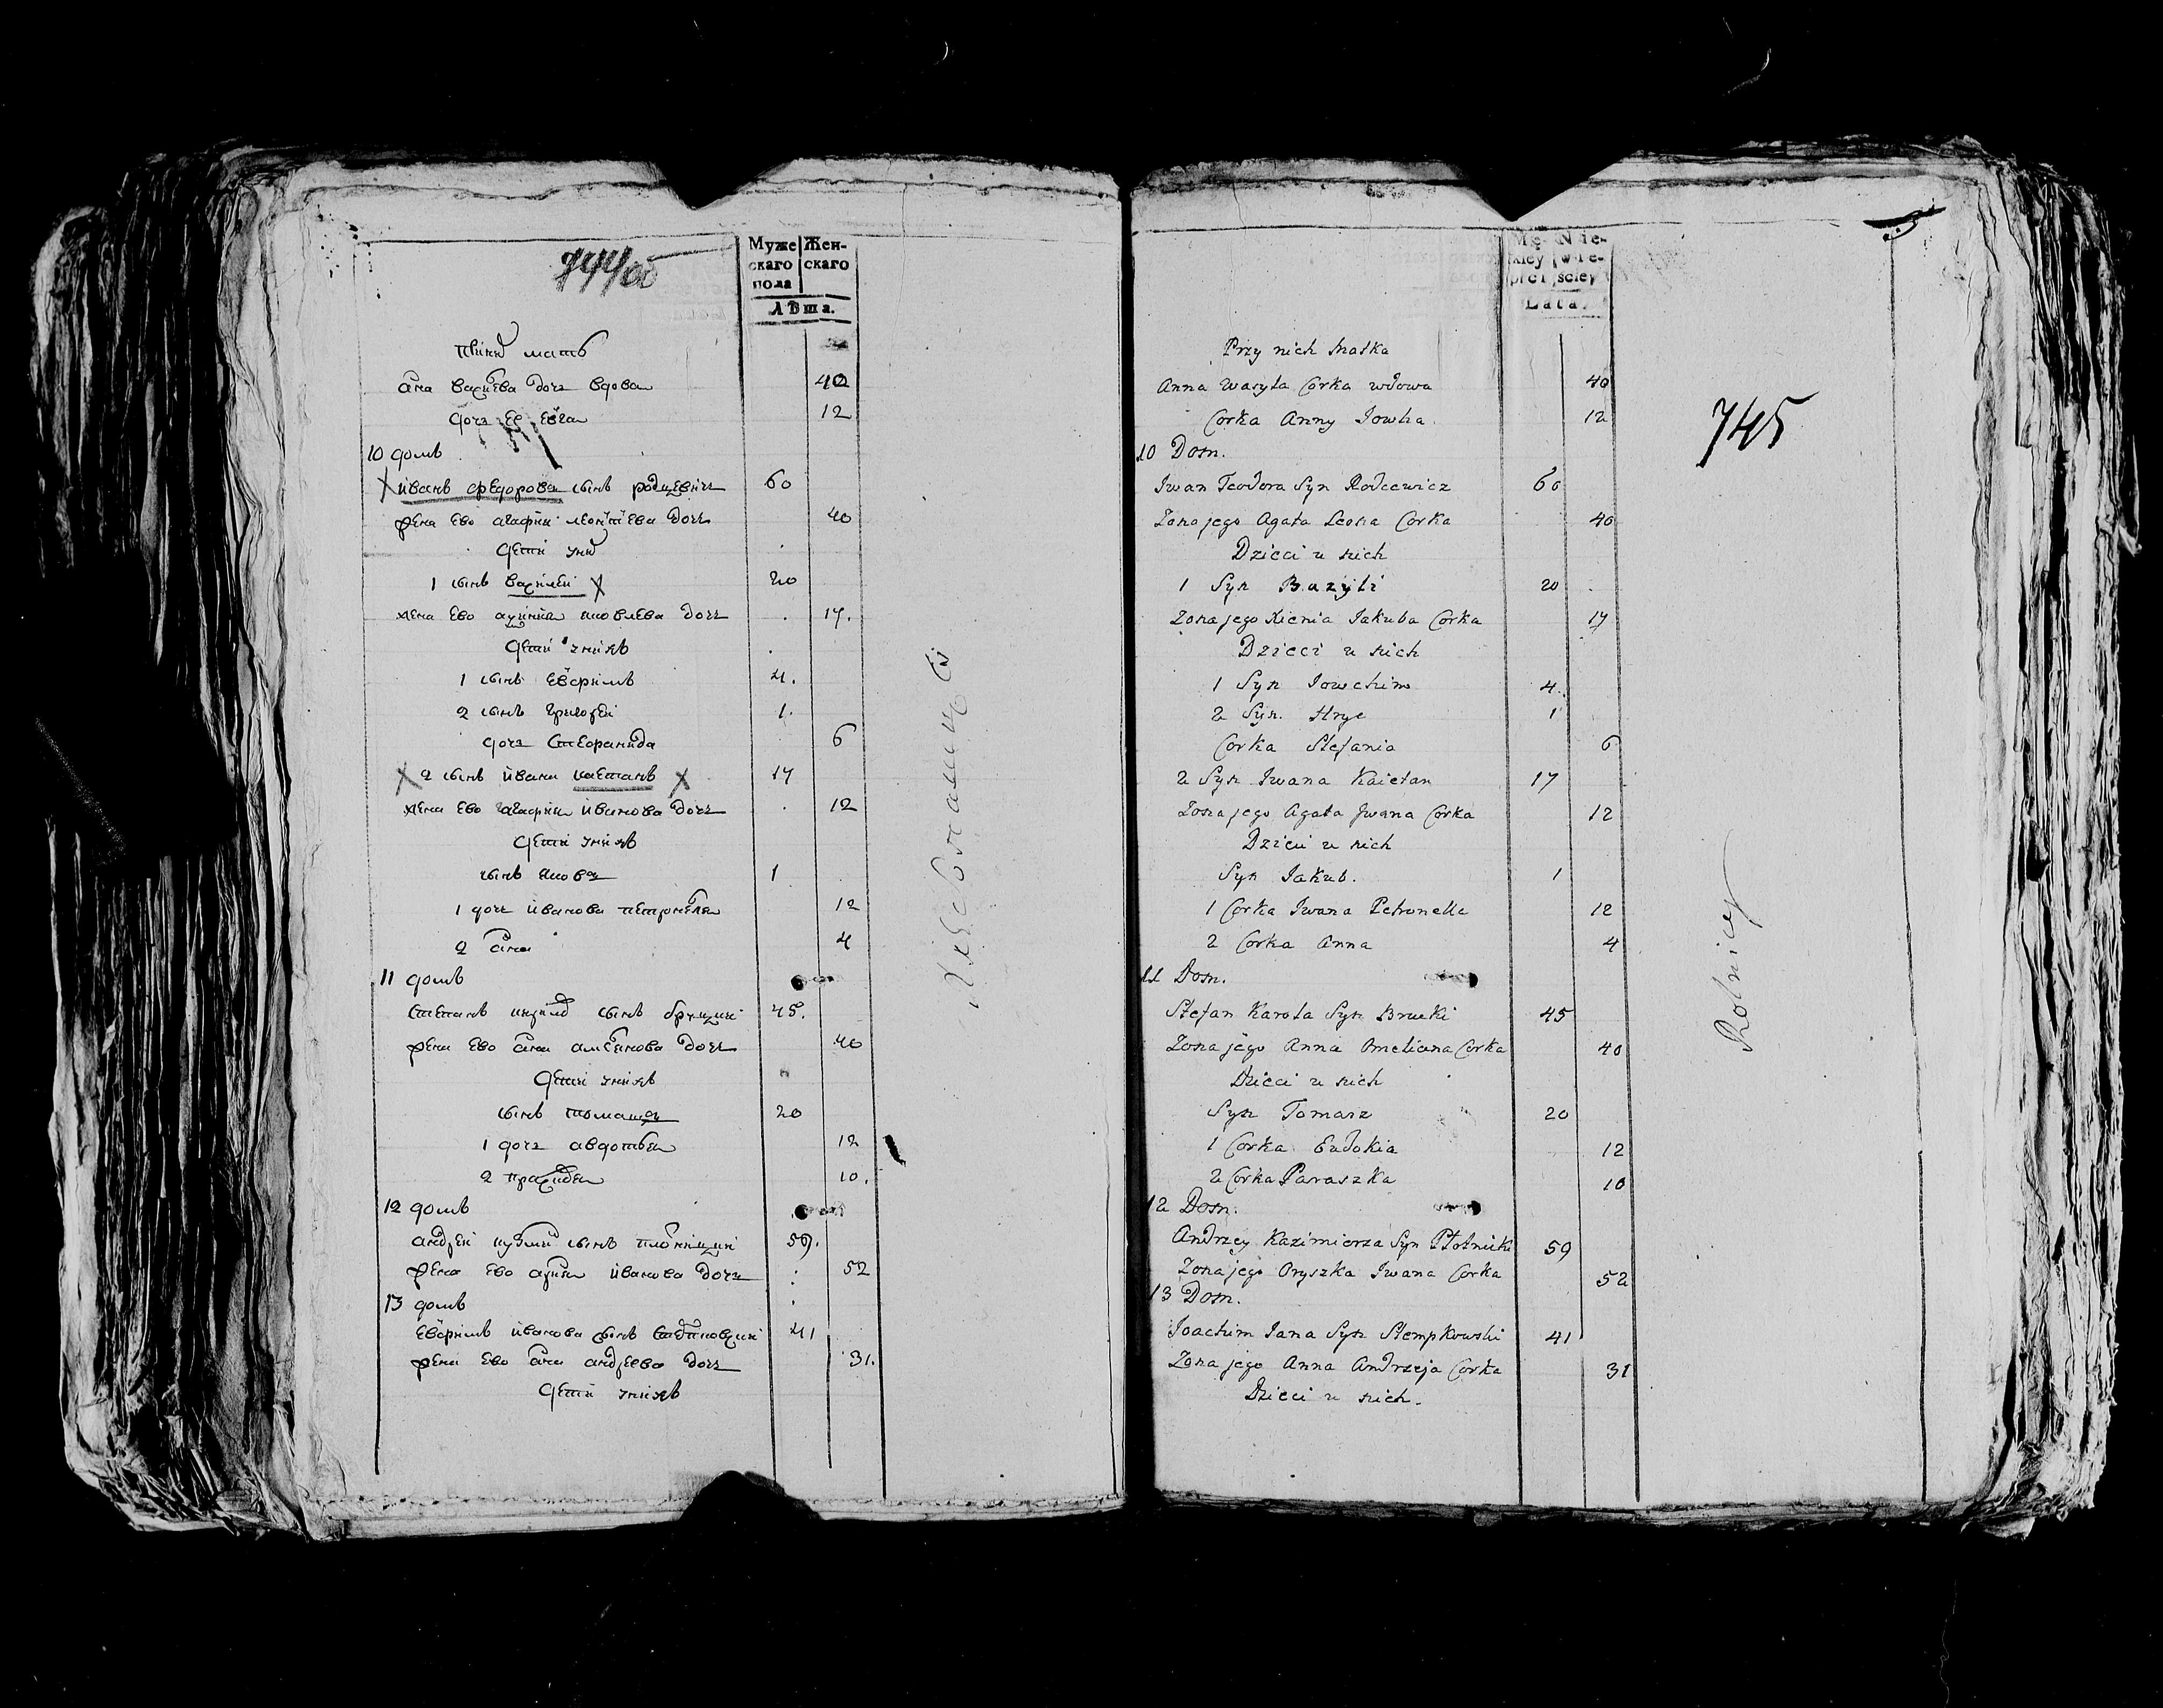 744 об
Муже
скаго
пола
Жен-
скаго
Лѣта.
при нихъ мать
анна васильева дочь вдова 40
дочь ее евга 12
10 домъ
Иванъ федорова сынъ родцевичъ 60
жена ево агафия леонтьева дочь 40
дети у них
1 сынъ василей 20
жена ево аксиния яковлева дочь 17.
дети у нихъ
1 сынъ евфимъ 4.
2 сынъ григорей 1.
дочь стефанида 6
2 сынъ ивана каетанъ 17
жена ево агафия иванова дочь 12
дети у нихъ
сынъ яковъ 1
1 дочь иванова петронеля 12
2 анна 4
11 домъ
степанъ сынъ 45.
жена ево анна дочь 40
дети у нихъ
сынъ томашъ 20
1 дочь авдотья 12
2 10.
12 домъ
андрей сынъ 59.
жена ево иванова дочь 52
13 домъ
евфимъ иванова сынъ 41
жена ево анна андреева дочь 31.
дети у нихъ
Mę-
kiey
płci
Nie-
wie-
ściey
Lata.
745
Przy nich matka
Anna Wasyla Corka wdowa 40
Corka Anny Iowha 12
10 Dom.
Iwan Teodora Syn Rodcewicz 60
Zona jego Agata Leona Corka 40
Dzieci u nich
1 Syn Bazyli 20
Zona jego Xienia Iakuba Corka 17
Dzieci u nich
1 Syn Iowchim 4.
2 Syn. Hryc 1
Corka Stefania 6
2 Syn Iwana Kaietan 17
Zona jego Agata Iwana Corka 12
Dzieci u nich
Syn Iakub. 1
1 Corka Iwana Petronella 12
2 Corka Anna 4
11 Dom.
Stefan Karola Syn Brucki 45
Zona jego Anna Omeliana Corka 40
Dzieci u nich
Syn Tomasz 20
1 Corka Eudokia 12
2 Corka Paraszka 10
12 Dom.
Andrzey Kazimierza Syn Płotnicki 59
Zona jego Oryszka Iwana Corka 52
13 Dom.
Joachim Jana Syn Stempkowski 41
Zona jego Anna Andrzeja Corka 31
Dzieci u nich.
Rolnicy